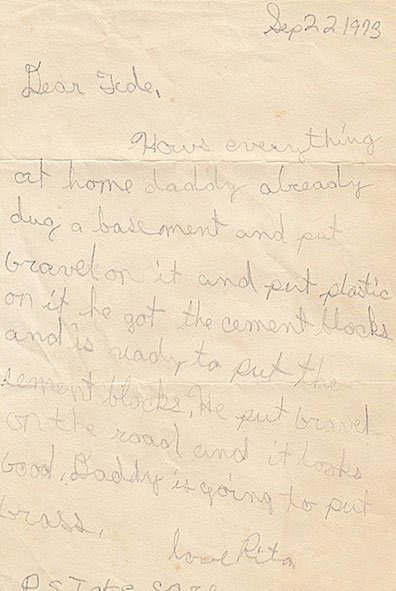 Sep 22 1973
Dear Tede,
Hows everything
at home daddy already
dug a basement and put
gravel on it and put plastic
on it he got the cement blocks
and is ready to put the
sement blocks. He put gravel
on the road and it looks
good. Daddy is going to put
grass.
love Rita
P.S.